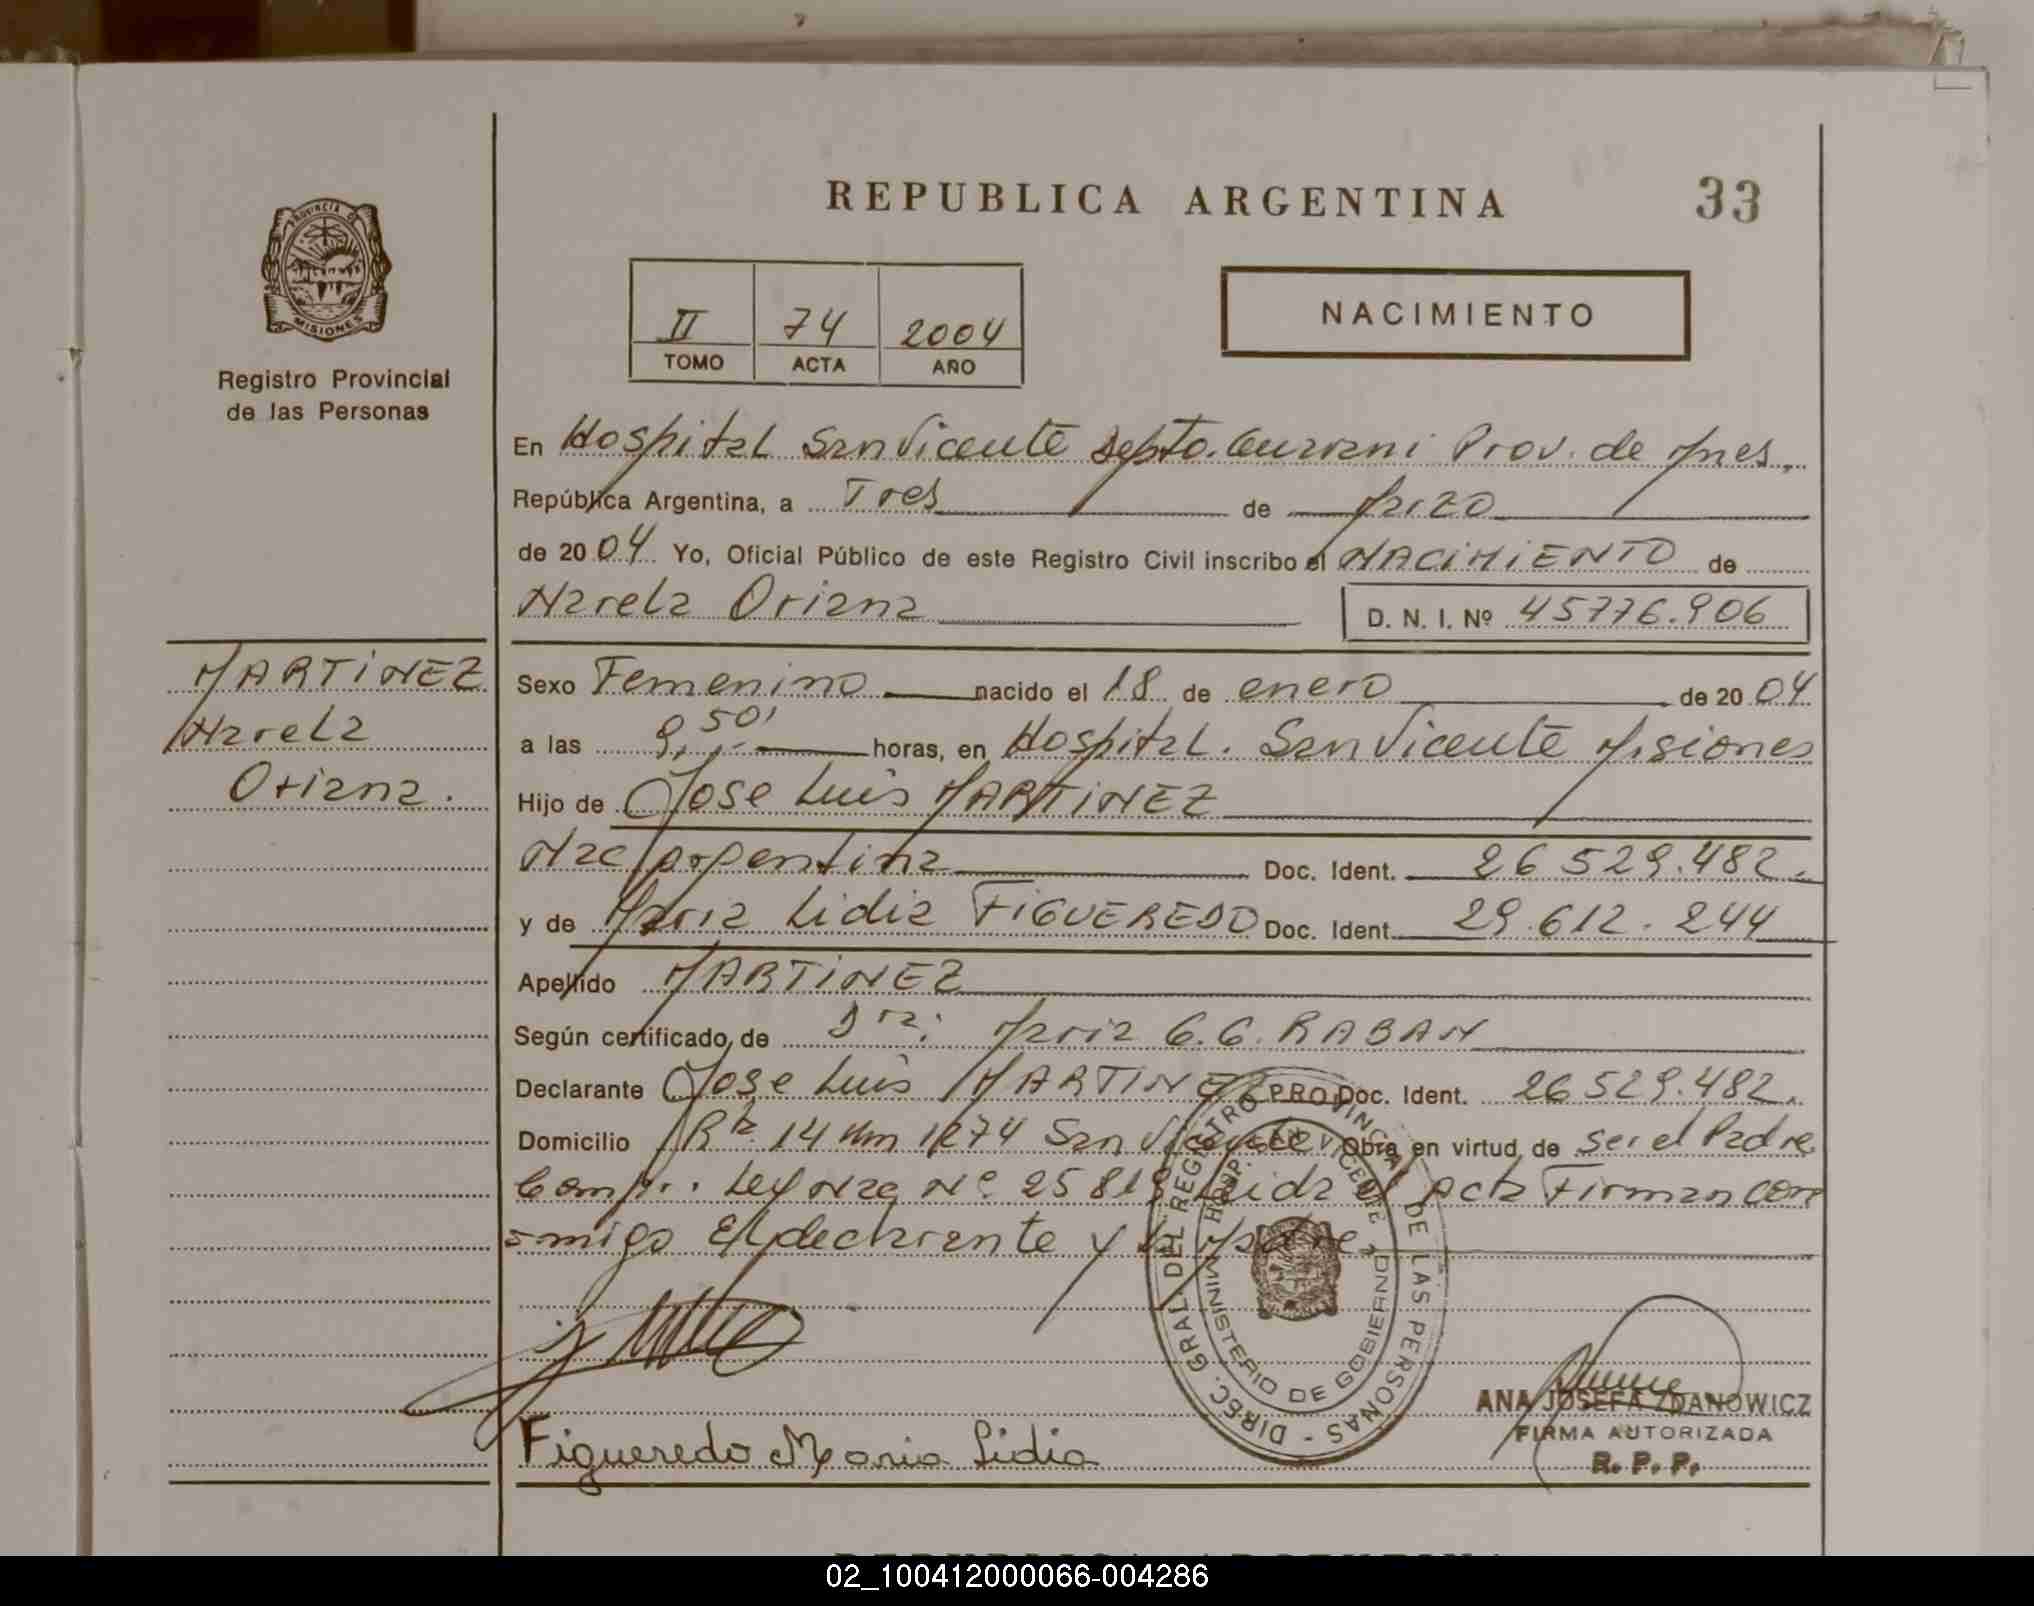 REPUBLICA ARGENTINA
33
PROVINCIA DE
MISIONES
Registro Provincial
de las Personas
II 74 2004
TOMO ACTA AÑO
NACIMIENTO
En Hospital San Vicente Depto. Guarani Prov. de Mnes.
República Argentina, a Tres de Marzo
de 2004 Yo, Oficial Público de este Registro Civil inscribo el NACIMIENTO de
Narela Oriana D. N. I. Nº 45776.906
MARTINEZ
Narela
Oriana.
Sexo Femenino nacido el 18 de enero de 2004
a las 9,50' horas, en Hospital. San Vicente Misiones
Hijo de Jose Luis MARTINEZ
Nac Argentina Doc. Ident. 26 529.482.
y de Maria Lidia FIGUEREDO Doc. Ident. 29.612.244
Apellido MARTINEZ
Según certificado, de Dra: Maria G.G. RABAN
Declarante Jose Luis MARTINEZ Doc. Ident. 26 529.482.
Domicilio Rta. 14 Km 1274 San Vicente Obra en virtud de ser el Padre
Comp.. Ley Nac Nº 25 819 Leida el Acta Firman con
migo El declarante y la Madre.
DIREC. GRAL. DEL REGISTRO PROVINCIAL DE LAS PERSONAS -
HOSP. SAN VICENTE
MINISTERIO DE GOBIERNO
Figueredo Maria Lidia
ANA JOSEFA ZDANOWICZ
FIRMA AUTORIZADA
R. P. P.
02_100412000066-004286